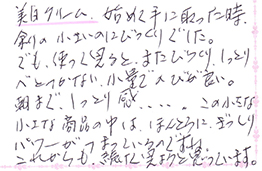 美白クリーム、始めて手に取った時、
余りの小さいのにびっくりでした。
でも、使って見ると、またびっくり、しっとり
べとつかない、小量でノビが良い。
朝まで、しっとり感・・・・。この小さな
小さな商品の中は、ほんとうに、ぎっしり
パワーがつまっているのですね。
これからも、続けて見ようと思っています。